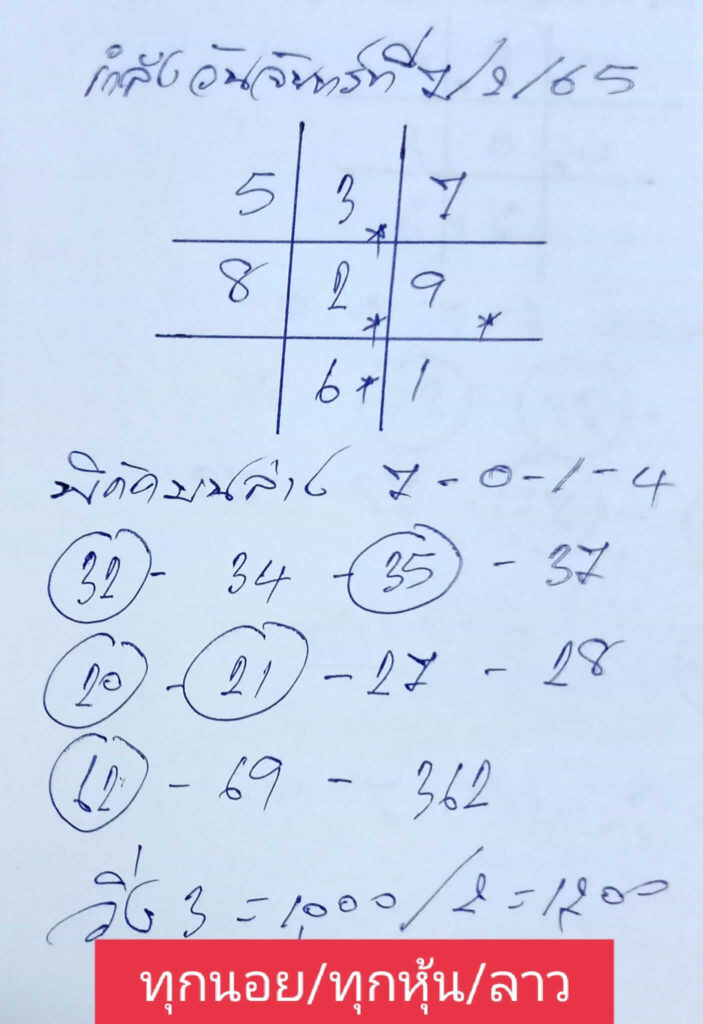 กำลังวันจันทร์ที่ 7/2/65
5 3 * 7
8 2 * 9 *
6 * 1
พิกัดบนล่าง 7-0-1-4
32 - 34 - 35 - 37
20 - 21 - 27 - 28
62 - 69 - 362
วิ่ง 3 = 1,000 / 2 = 1,200
ทุกนอย/ทุกหุ้น/ลาว